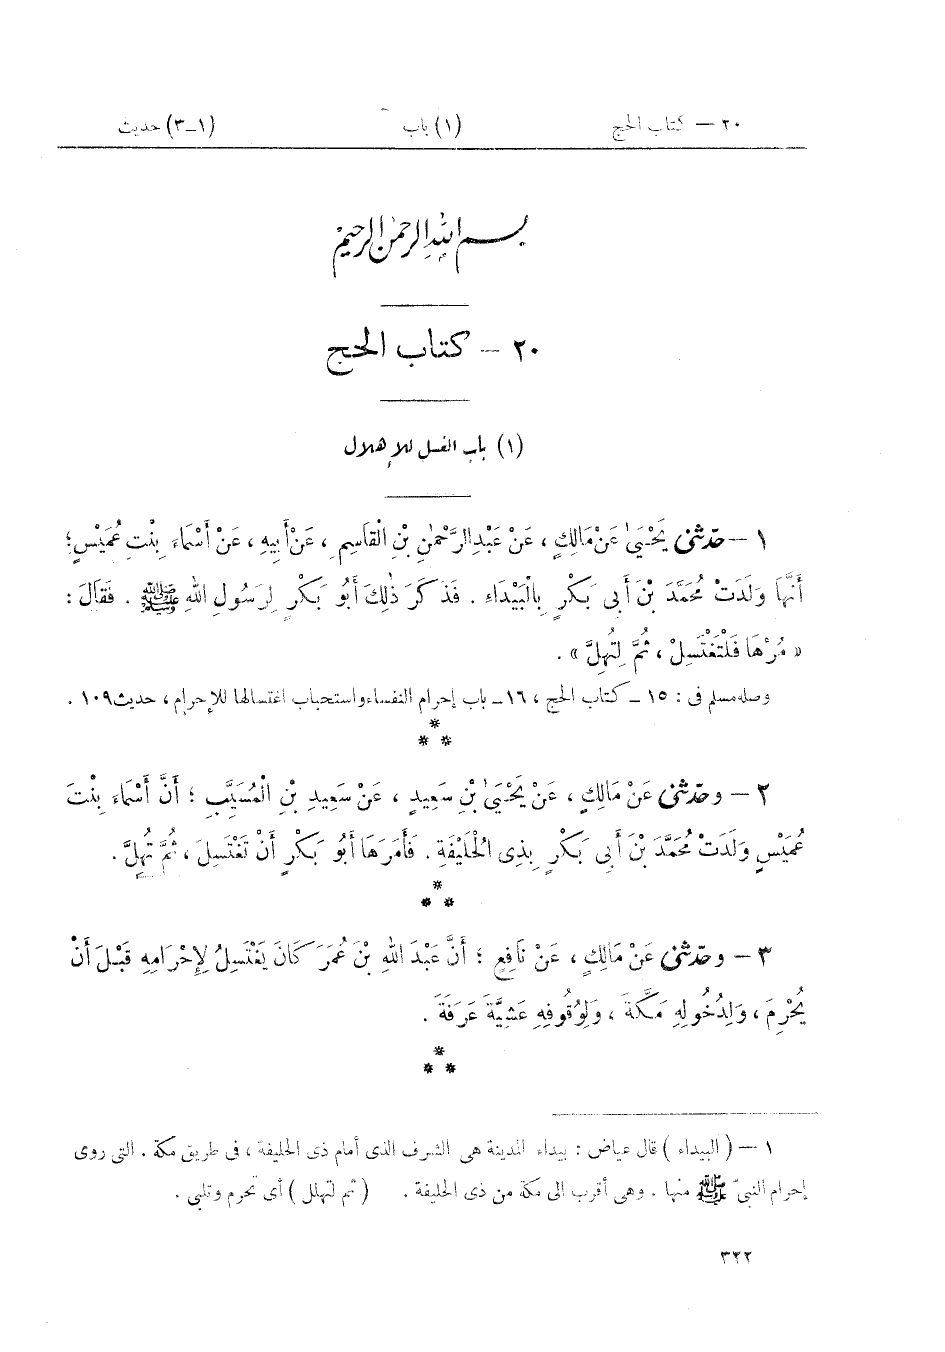 ٢٠ — كتاب الحج (١) باب (١-٣) حديث
بسم الله الرحمن الرحيم
٢٠ — كتاب الحج
(١) باب الغسل للإهلال
١ — حدّثنى يَحْيَىٰ عَنْ مَالِكٍ ، عَنْ عَبْدِ الرَّحْمٰنِ بْنِ الْقَاسِمِ ، عَنْ أَبِيهِ ، عَنْ أَسْمَاءَ بِنْتِ عُمَيْسٍ ؛
أَنَّهَا وَلَدَتْ مُحَمَّدَ بْنَ أَبِى بَكْرٍ بِالْبَيْدَاءِ . فَذَكَرَ ذٰلِكَ أَبُو بَكْرٍ لِرَسُولِ اللهِ ﷺ . فَقَالَ :
« مُرْهَا فَلْتَغْتَسِلْ ، ثُمَّ لِتُهِلَّ » .
وصله مسلم فى : ١٥ ـ كتاب الحج ، ١٦ ـ باب إحرام النفساء واستحباب اغتسالها للإحرام ، حديث ١٠٩ .
*
* *
٢ — وحدّثنى عَنْ مَالِكٍ ، عَنْ يَحْيَىٰ بْنِ سَعِيدٍ ، عَنْ سَعِيدِ بْنِ الْمُسَيَّبِ ؛ أَنَّ أَسْمَاءَ بِنْتَ
عُمَيْسٍ وَلَدَتْ مُحَمَّدَ بْنَ أَبِى بَكْرٍ بِذِى الْحُلَيْفَةِ . فَأَمَرَهَا أَبُو بَكْرٍ أَنْ تَغْتَسِلَ ، ثُمَّ تُهِلَّ .
*
* *
٣ — وحدّثنى عَنْ مَالِكٍ ، عَنْ نَافِعٍ ؛ أَنَّ عَبْدَ اللهِ بْنَ عُمَرَ كَانَ يَغْتَسِلُ لِإِحْرَامِهِ قَبْلَ أَنْ
يُحْرِمَ ، وَلِدُخُولِهِ مَكَّةَ ، وَلِوُقُوفِهِ عَشِيَّةَ عَرَفَةَ .
*
* *
١ — ( البيداء ) قال عياض : بيداء المدينة هى الشرف الذى أمام ذى الحليفة ، فى طريق مكة . التى روى
إحرام النبىّ ﷺ منها . وهى أقرب الى مكة من ذى الحليفة . ( ثم لتهلل ) أى تحرم وتلبي .
٣٢٢